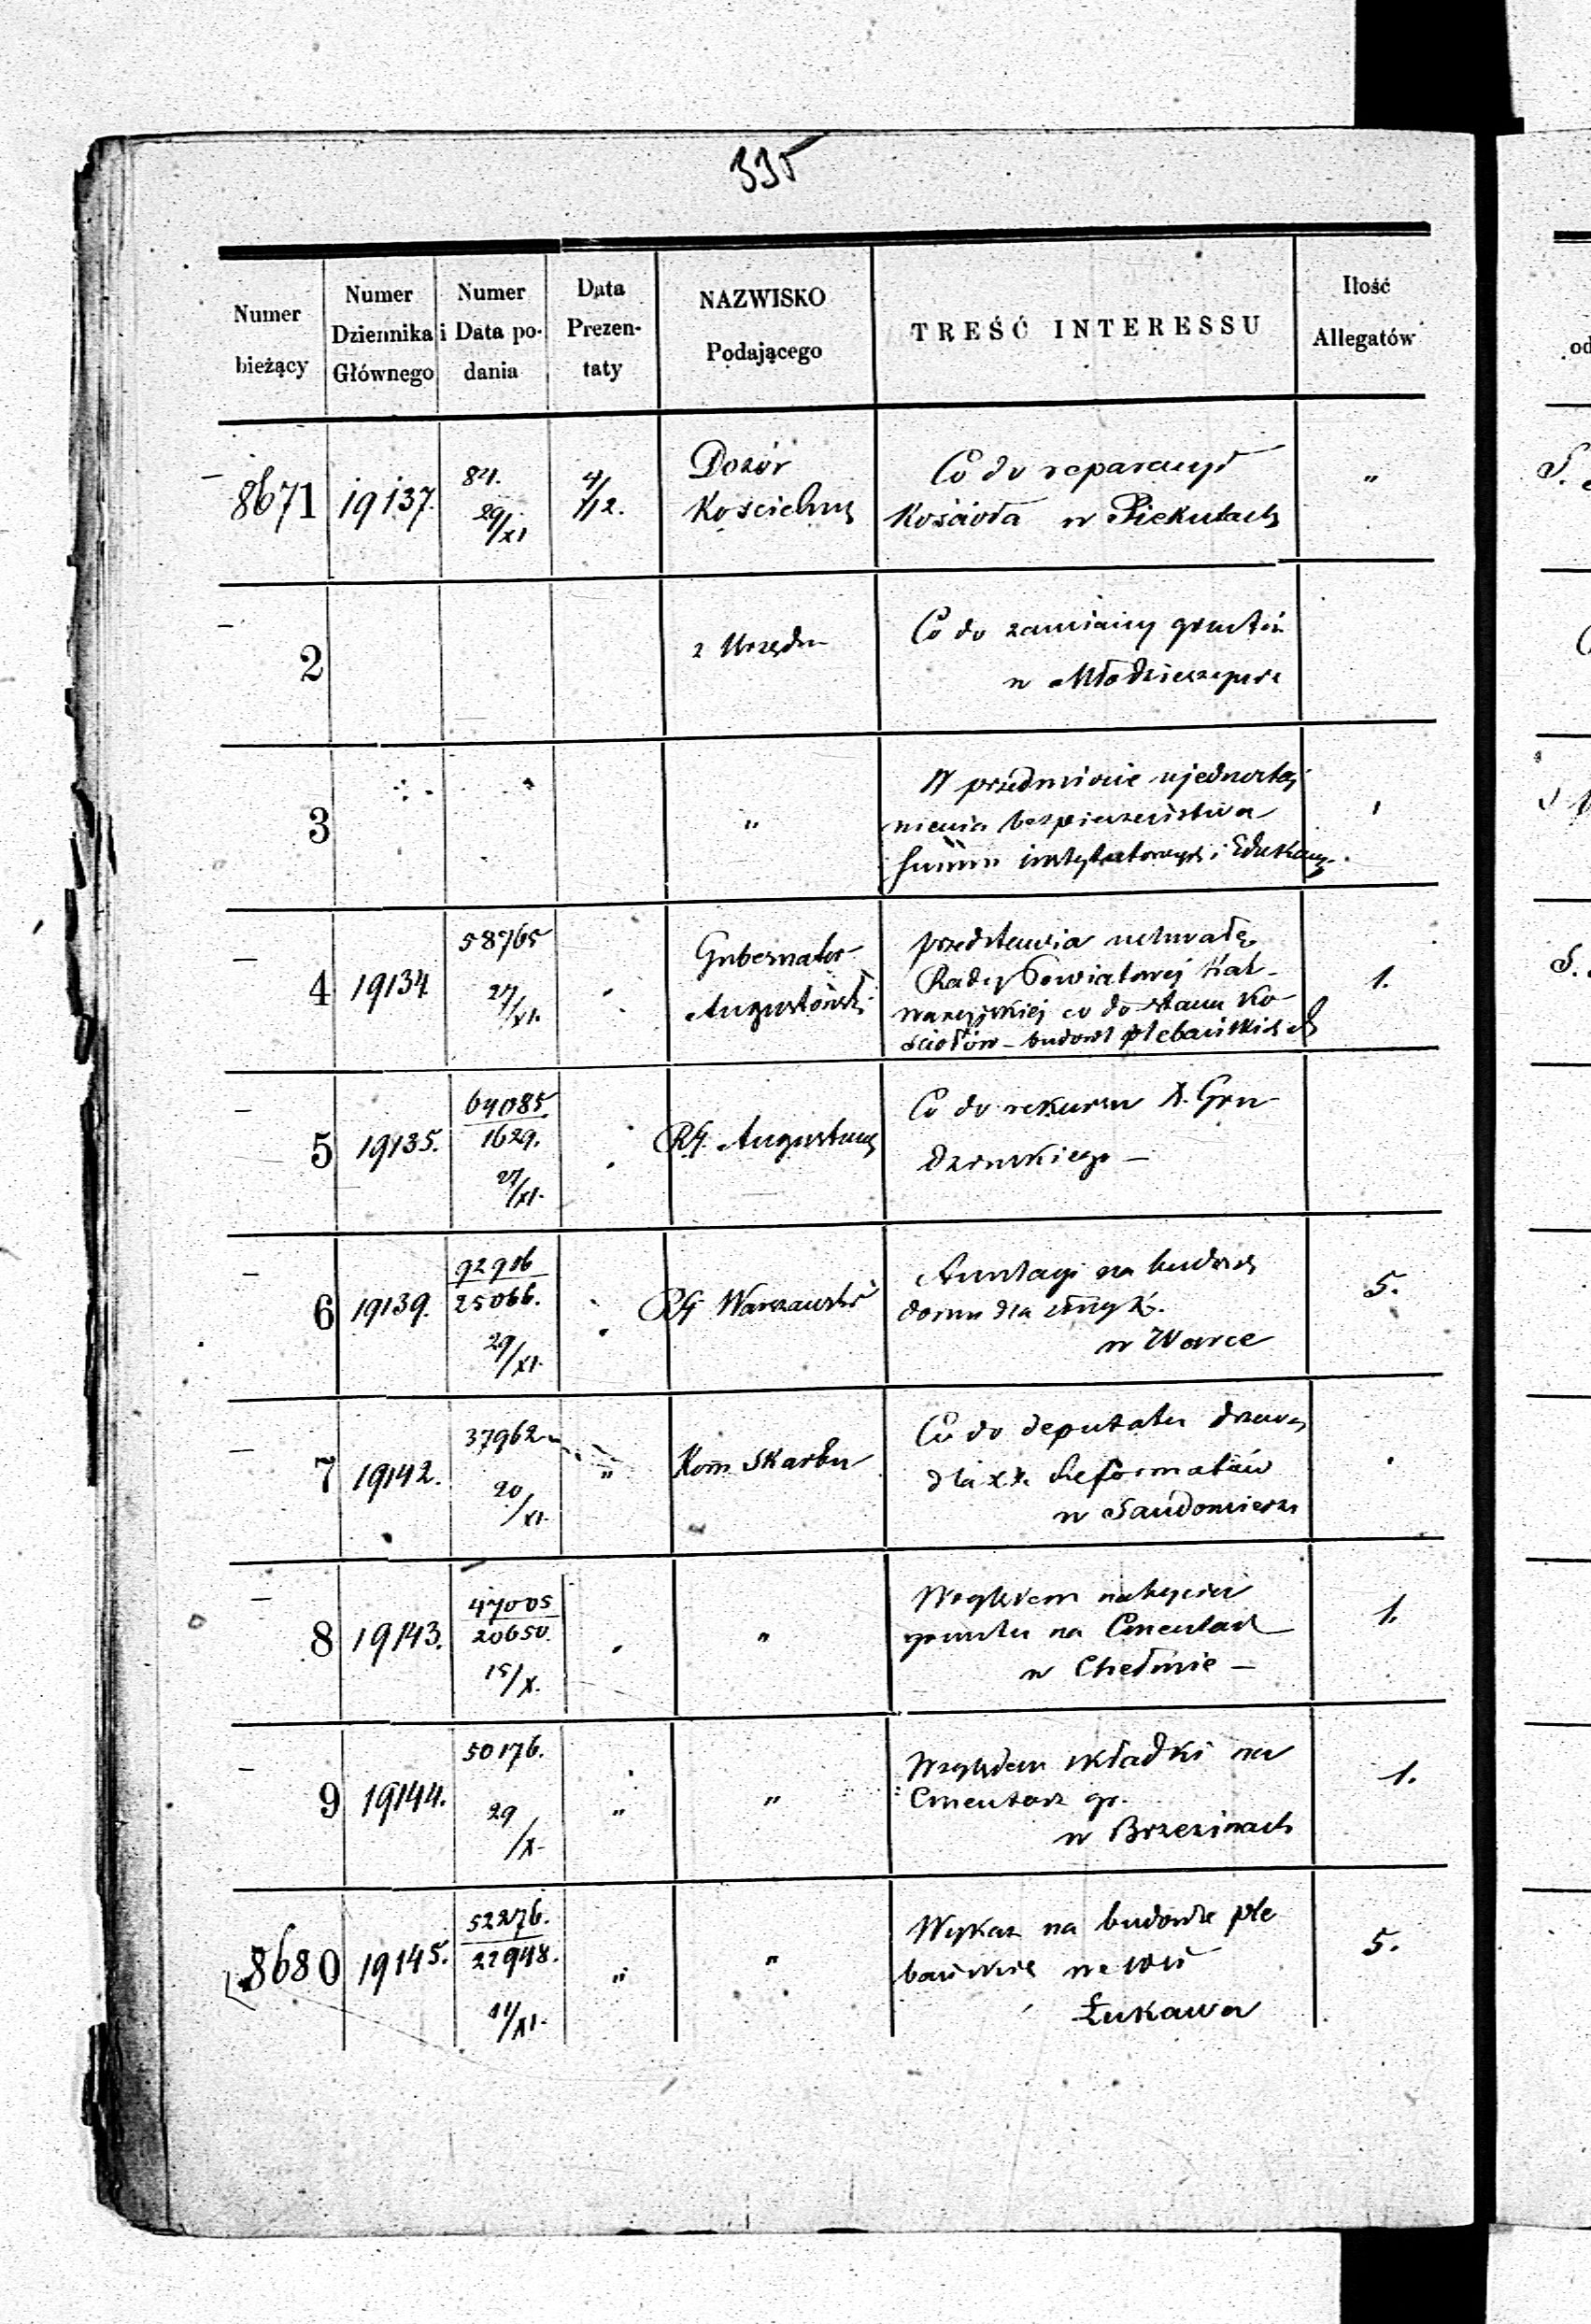 335
Numer bieżący
Numer Dziennika Głównego
Numer i Data podania
Data Prezentaty
NAZWISKO Podającego
TREŚĆ INTERESSU
Ilość Allegatów
8671 19137. 84. 29/XI 4/12. Dozór Co do reparacyi „
Kościelny Kościoła w Piekutach
2 z Urzędu Co do zamiany gruntów
w
3 „ W przedmiocie
nienia bezpieczeństwa
summ i
4 19134 58765 27/XI. Gubernator przedstawia uchwałę 1.
Augustowski Rady Powiatowej Kal-
waryjskiej co do stanu Ko-
ściołów – budowl plebańskich
5 19135. 64085 1629. 27/XI. RG. Augustows Co do rekursu X. Gru-
dzewskiego –
6 19139. 92906 25066. 29/XI. RG Warszawski na budowę 5.
domu dla
w Warce
7 19142. 37962 20/XI. „ Kom Skarbu Co do deputatu drzewa
dla XX. Reformatów
w Sandomierzu
8 19143. 47005 20650. 15/X. „ Względem nabycia 1.
gruntu na Cmentarz
w Chełmie –
9 19144. 50176. 29/X. „ „ Względem składki na 1.
Cmentarz gr.
w Brzezinach
8680 19145. 52276. 22948. 11/XI. „ „ Wykaz na budowle ple 5.
bańskie we wsi
Łukawa